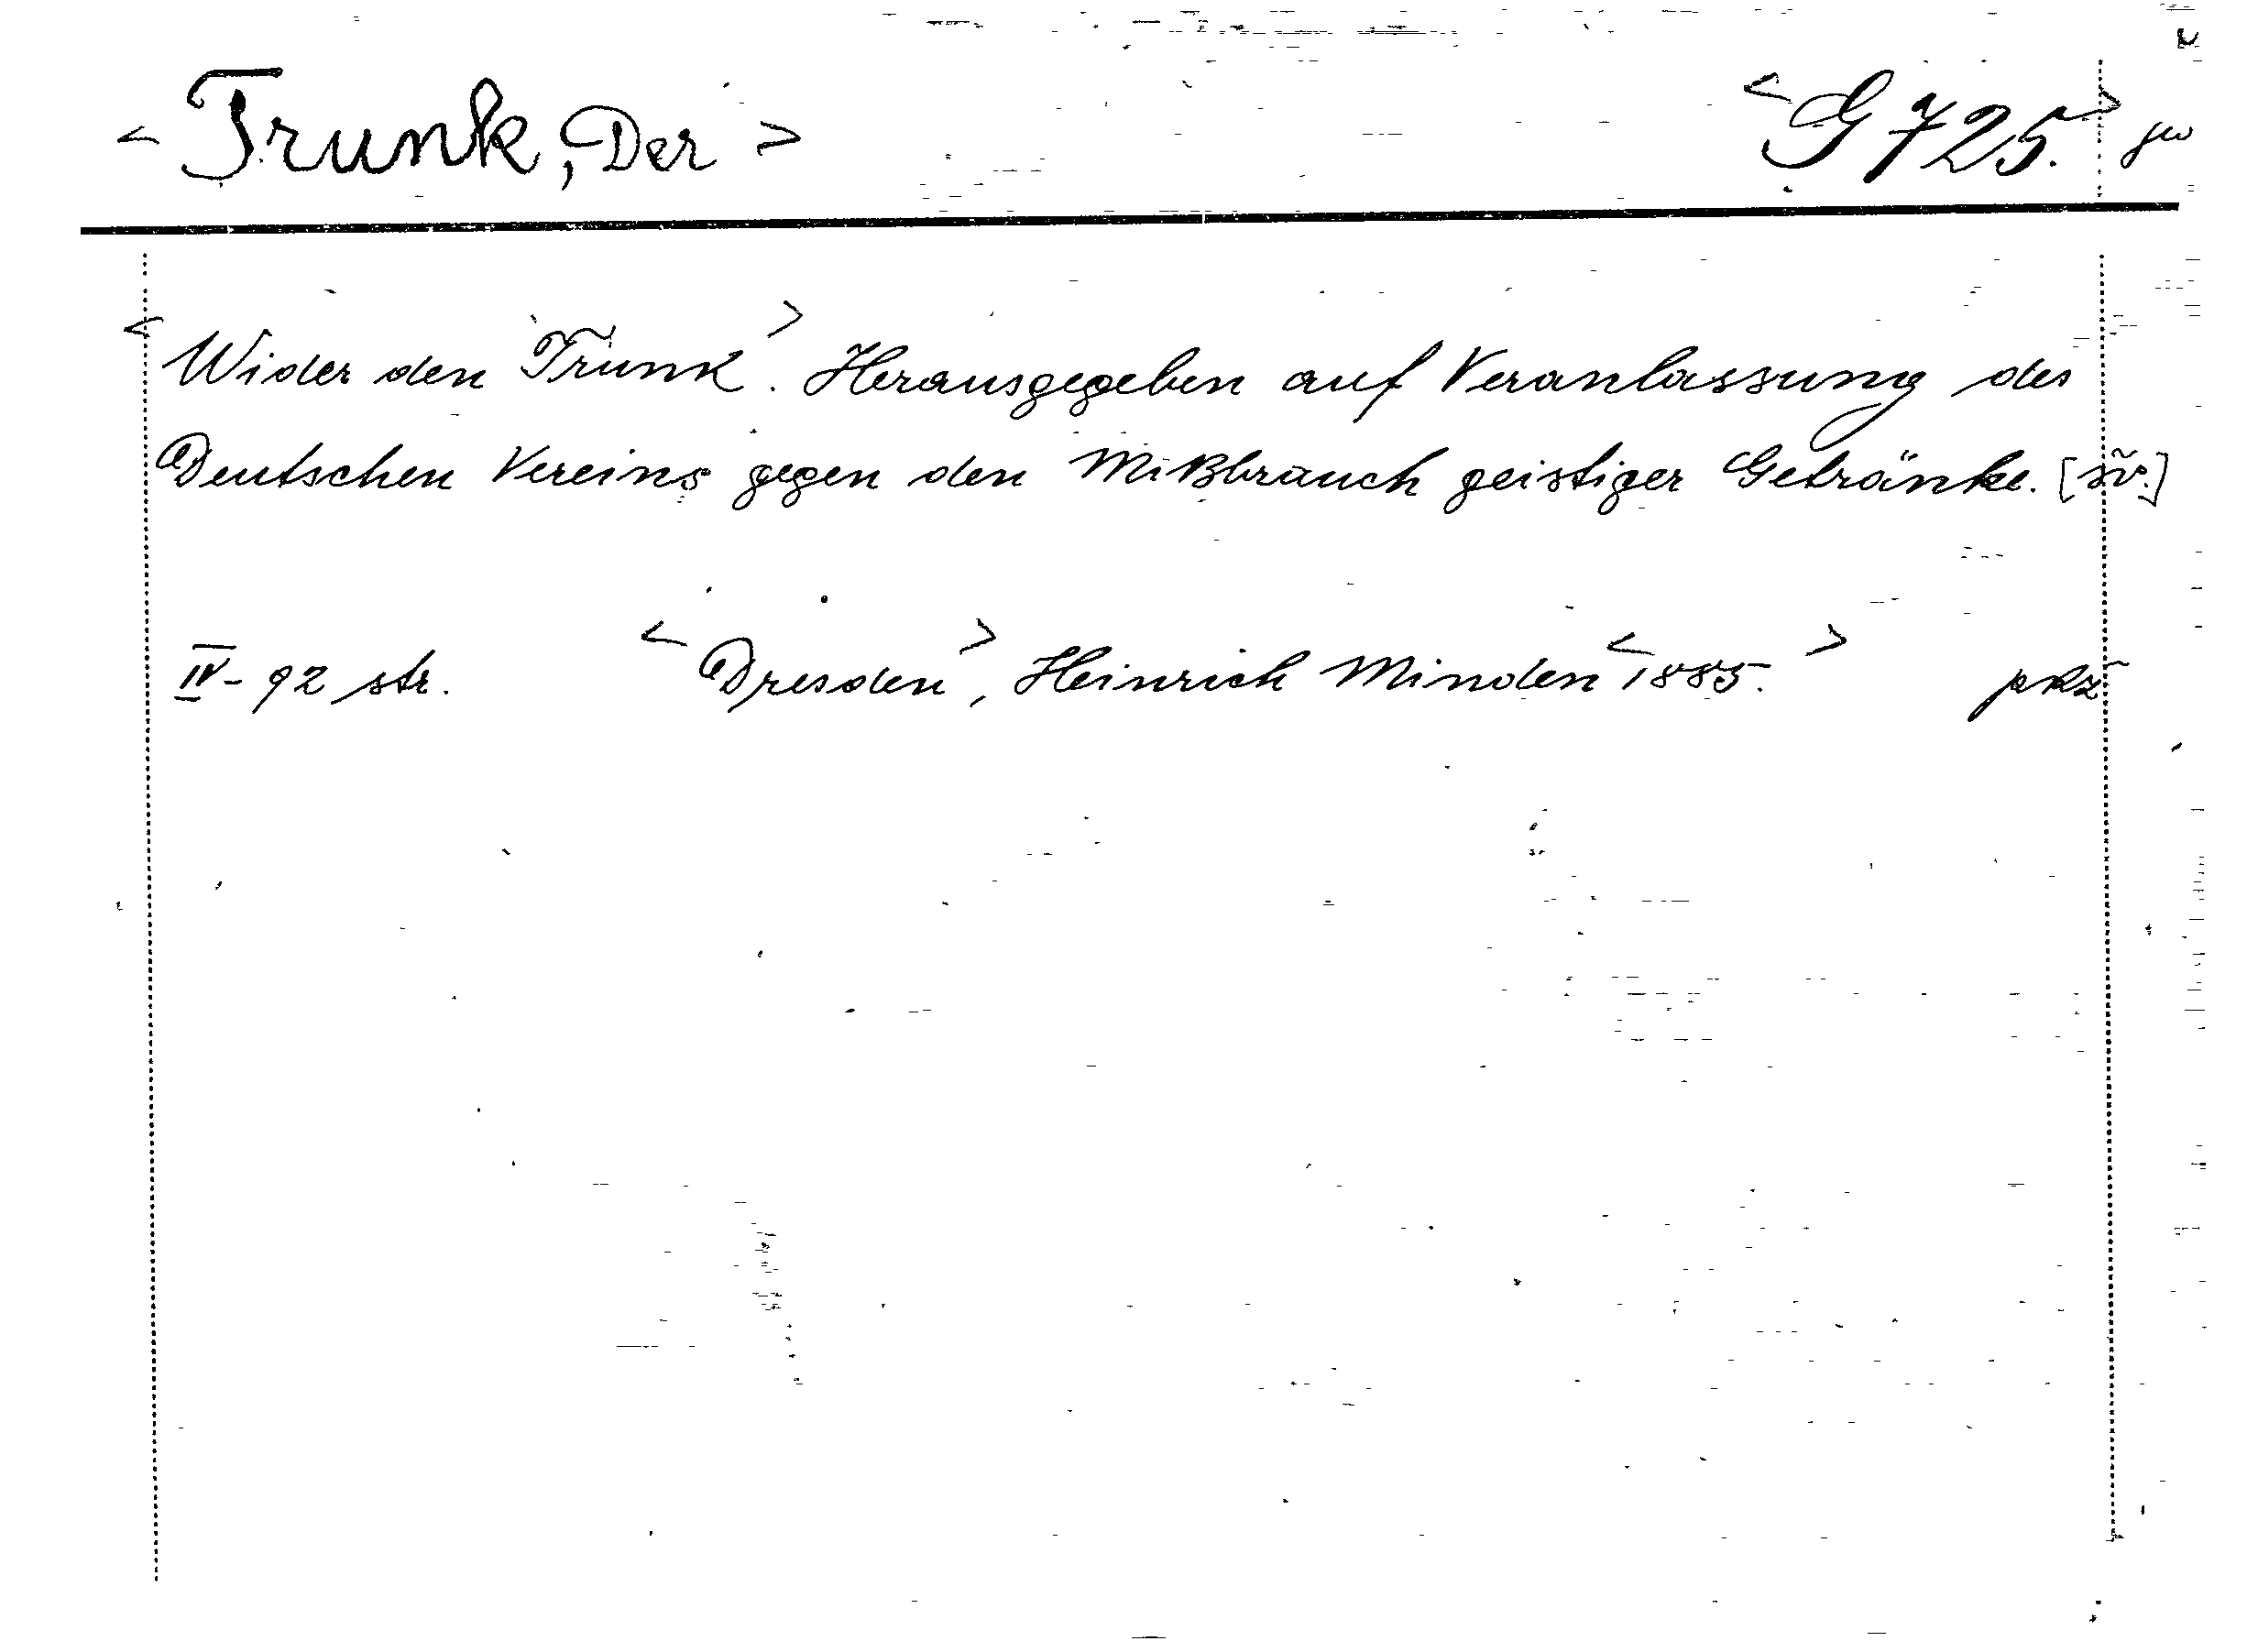 < Trunk, Der > < G 725. >
< Wider den Trunk >. Herausgegeben auf Veranlassung des
Deutschen Vereins gegen den Mißbrauch geistiger Getränke.
IV - 92 str. < Dresden >, Heinrich Minden < 1885. >